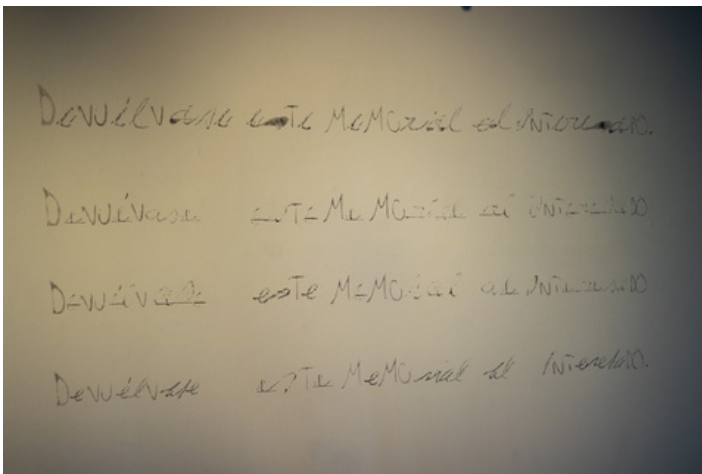 Devuélvase este MeMOrial al INTeresado.
Devuévase este MeMOrial al INTeresado
Devuélvase este MeMOrial al INTeresado
Devuélvase este MeMOrial al INTeresado.